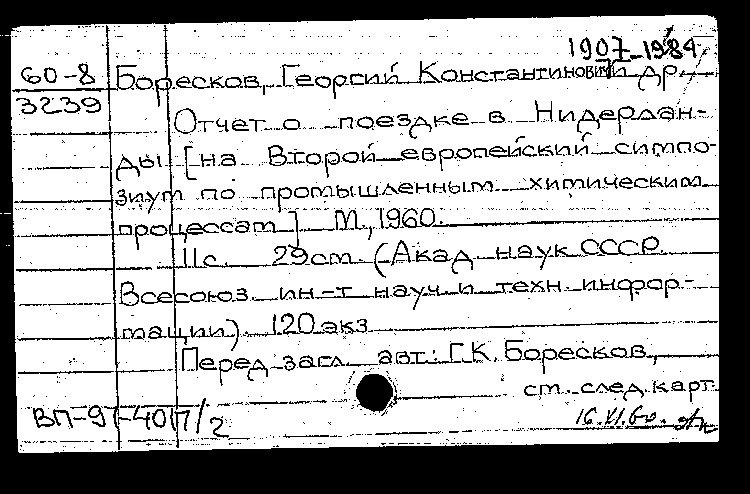 1907-1984
60-8 Боресков, Георгий Константинович и др.
3239
Отчет о поездке в Нидерлан-
ды [на Второй европейский симпо-
зиум по промышленным химическим
процессам] М., 1960.
11с. 29см. (Акад. наук СССР.
Всесоюз. ин-т науч. и техн. инфор-
мации). 120 экз.
Перед загл. авт.: Г.К. Боресков,
см. след. карт.
16.VI.60.